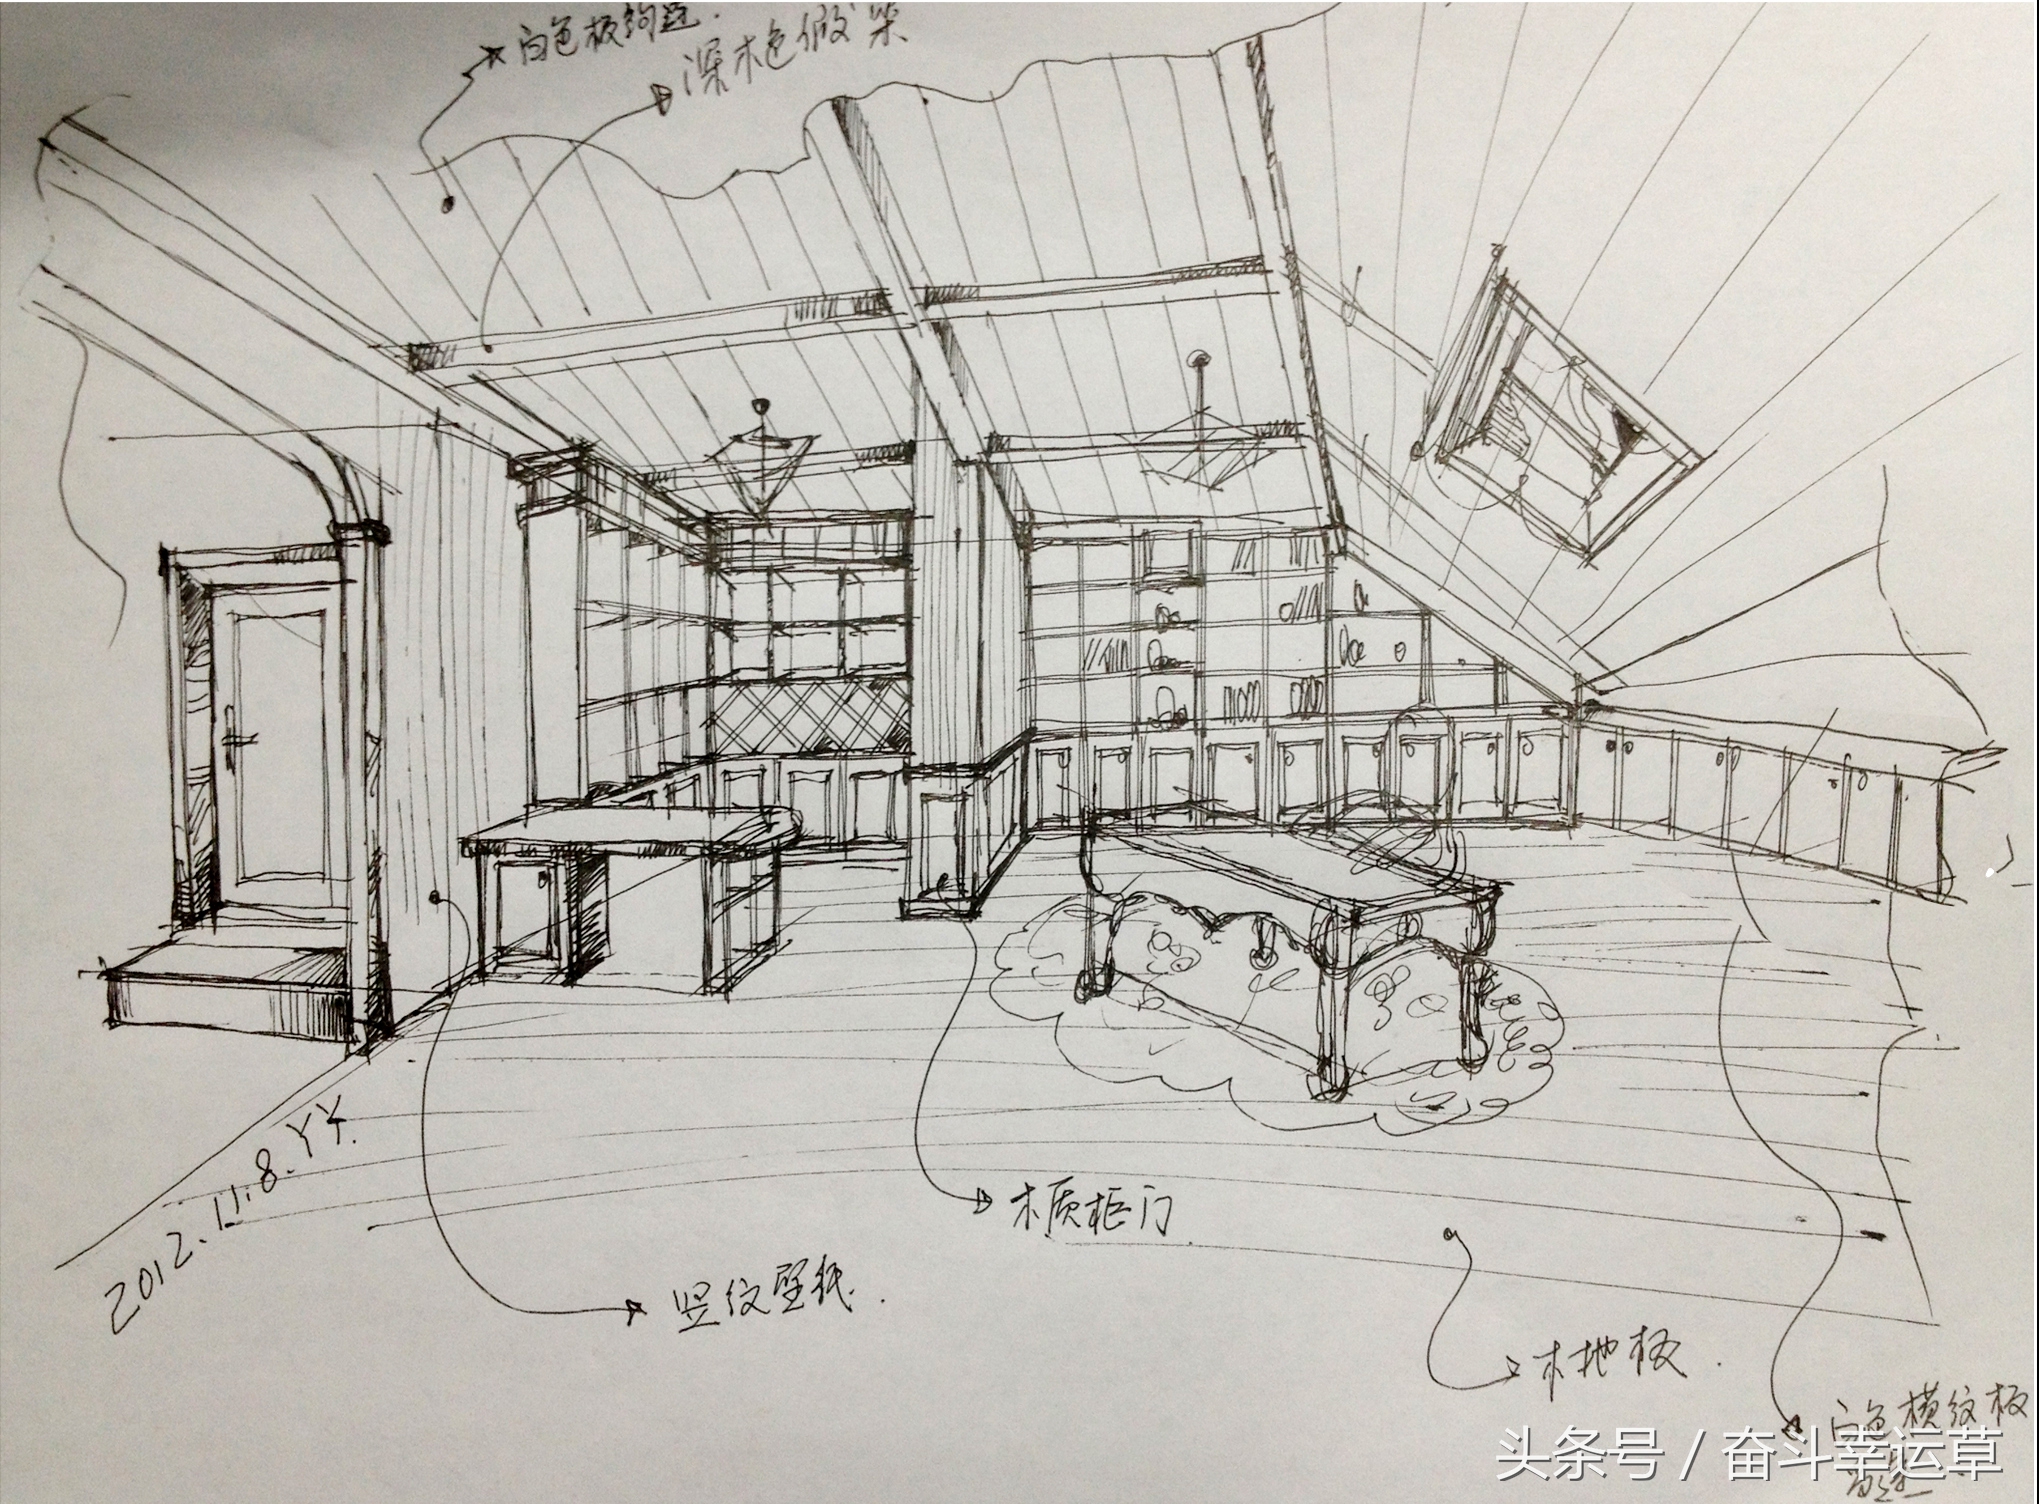 白色板钩
深木色假梁
木质柜门
2012.11.8.YY.
竖纹壁纸.
木地板.
白色横纹板
头条号 / 奋斗幸运草